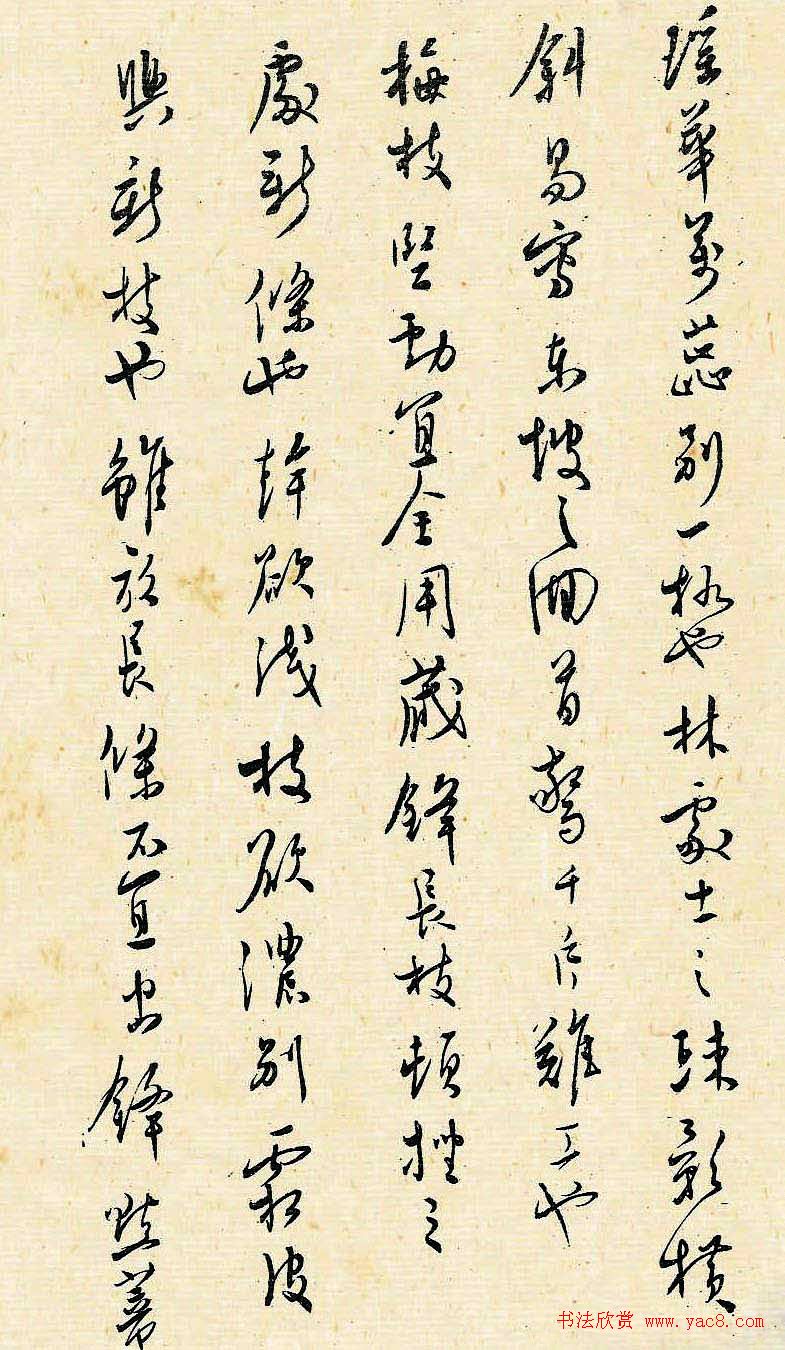 瑶華萬蕊别一格也林處士之疎影横
斜易寫東坡之回首驚千片難工也
梅枝竪動宜全用藏鋒長枝頓挫之
處新條也幹欲淺枝欲濃别霜皮
與新枝也雖放長條不宜出鋒點萼
书法欣赏 www.yac8.com